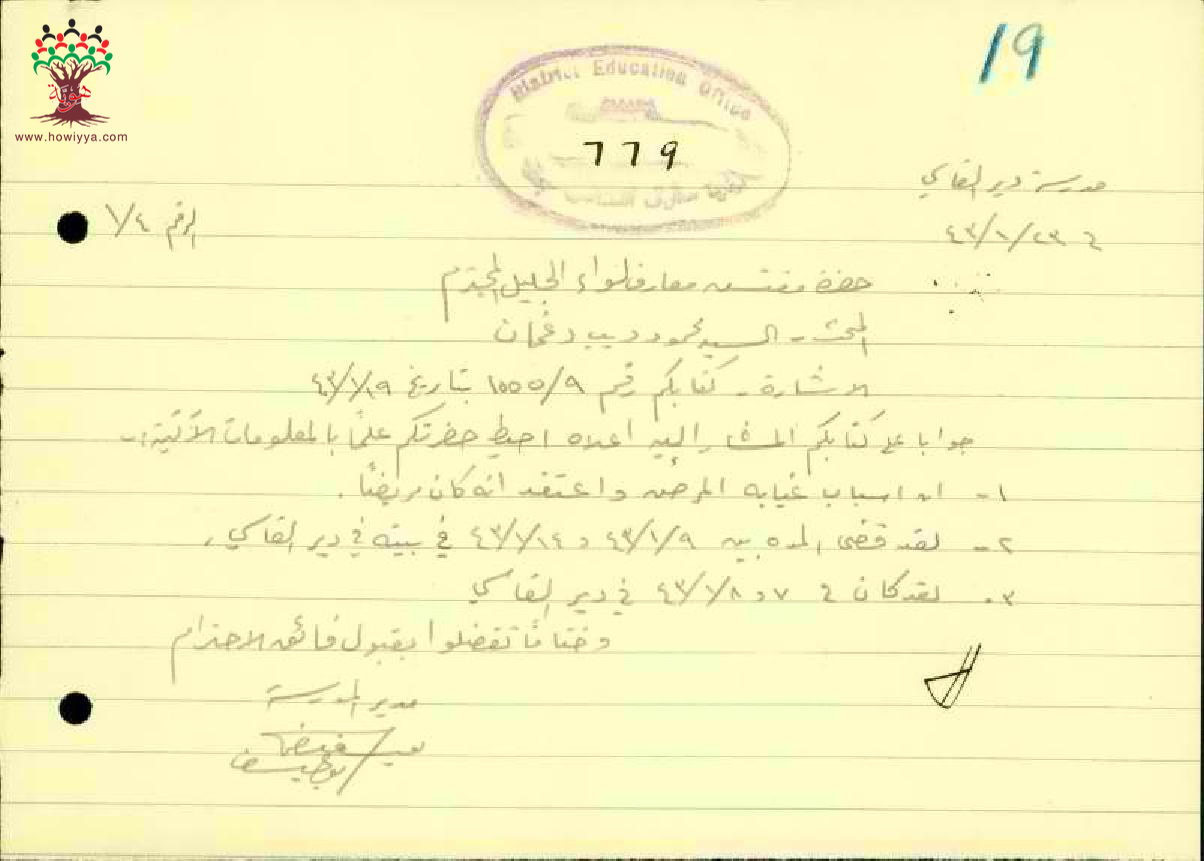 19
District Education Office
779
www.howiyya.com
مدرسة دير القاسي
في ٢٣/١/٤٣
الرقم ١/٤
حضرة مفتش معارف لواء الجليل المحترم
البحث - السيد محمود ديب دغمان
الاشارة - كتابكم رقم ١٥٥٥/٩ بتاريخ ٤٣/١/١٩
جوابا على كتابكم المشار إليه اعلاه احيط حضرتكم علمًا بالمعلومات الآتية:-
١- ان اسباب غيابه المرض واعتقد انه كان مريضًا.
٢- لقد قضى المده بين ٤٣/١/٩ و ٤٣/١/١٤ في بيته في دير القاسي.
٣- لقد كان في ٧ و ٤٣/١/٨ في دير القاسي
وختامًا تفضلوا بقبول فائق الاحترام
مدير المدرسة